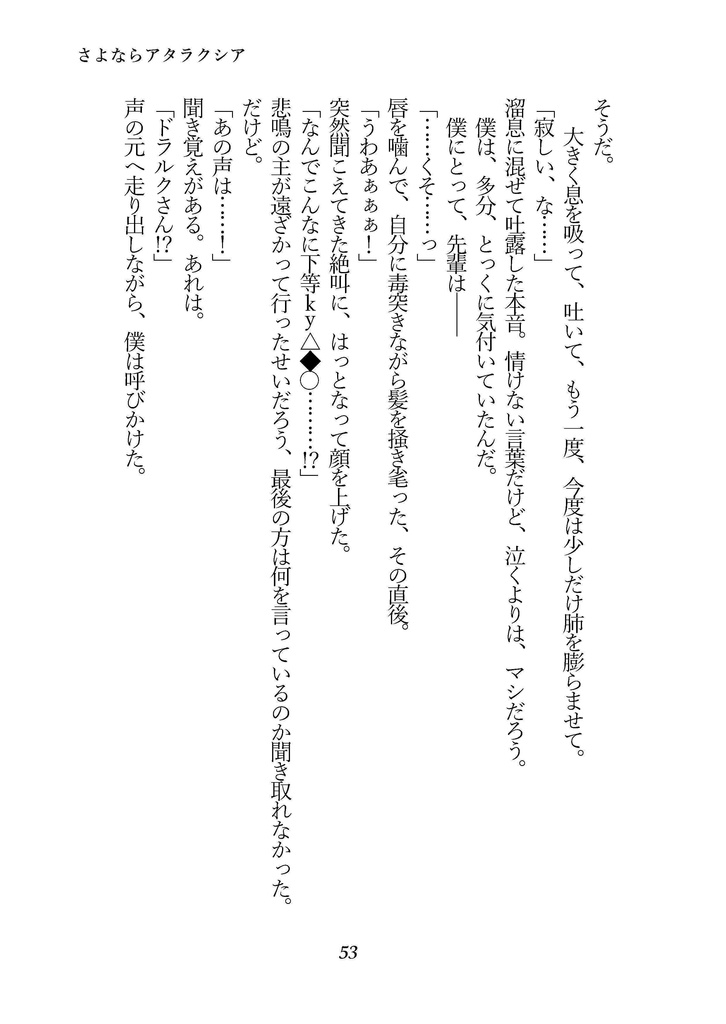 さよならアタラクシア
そうだ。
　大きく息を吸って、吐いて、もう一度、今度は少しだけ肺を膨らませて。
「寂しい、な……」
溜息に混ぜて吐露した本音。情けない言葉だけど、泣くよりは、マシだろう。
　僕は、多分、とっくに気付いていたんだ。
　僕にとって、先輩は――
「……くそ……っ」
唇を噛んで、自分に毒突きながら髪を掻き毟った、その直後。
「うわあぁぁぁ！」
突然聞こえてきた絶叫に、はっとなって顔を上げた。
「なんでこんなに下等ky△◆○………!?」
悲鳴の主が遠ざかって行ったせいだろう、最後の方は何を言っているのか聞き取れなかった。
だけど。
「あの声は……！」
聞き覚えがある。あれは。
「ドラルクさん!?」
声の元へ走り出しながら、僕は呼びかけた。
53